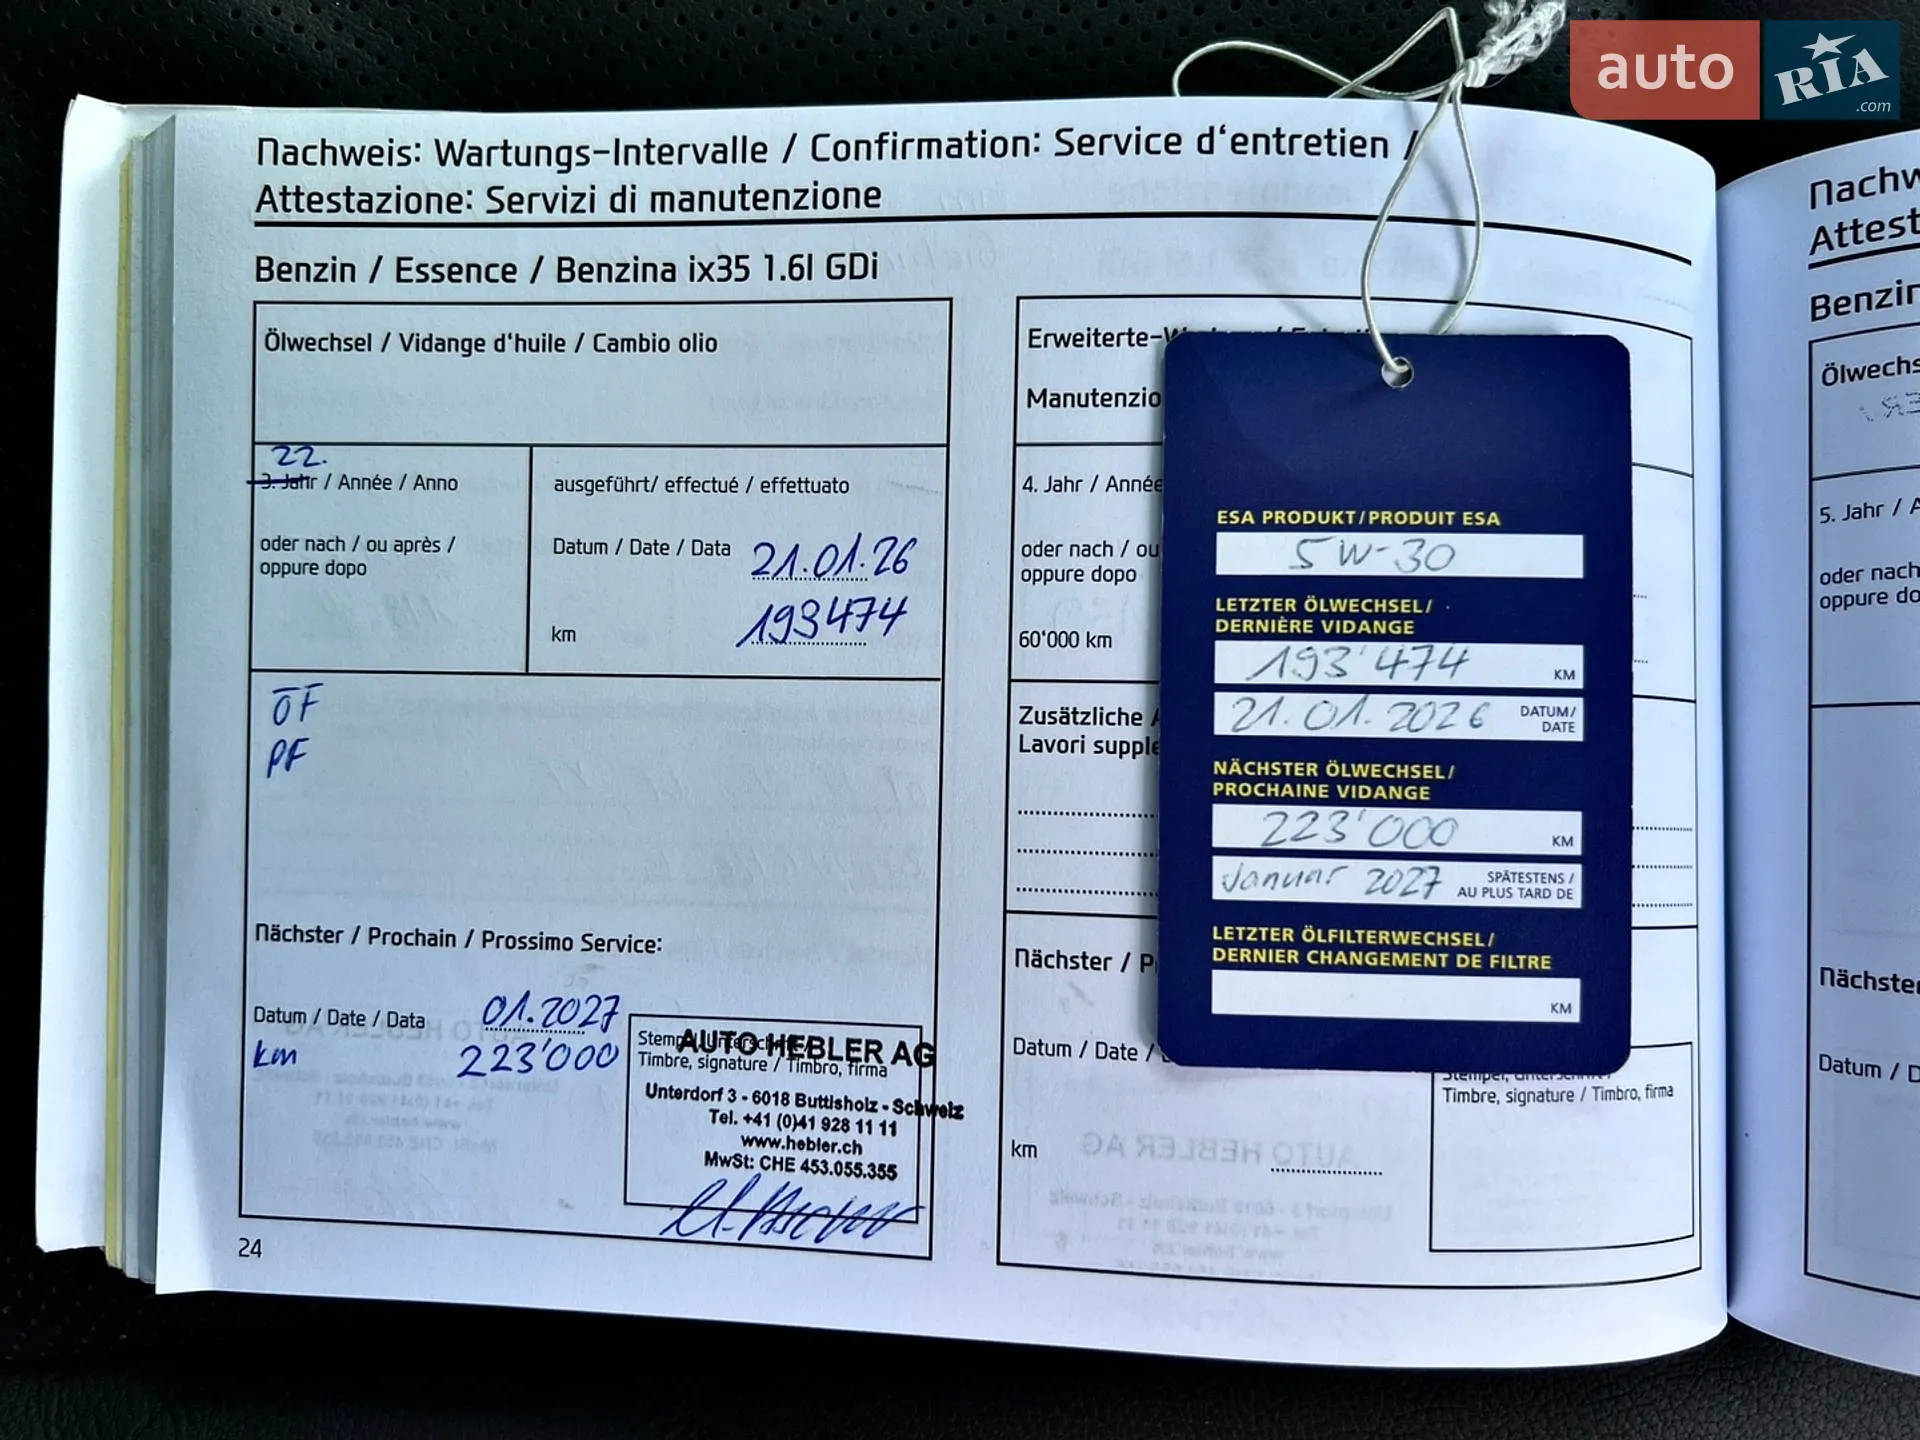 auto RIA.com
Nachweis: Wartungs-Intervalle / Confirmation: Service d'entretien /
Attestazione: Servizi di manutenzione
Benzin / Essence / Benzina ix35 1.6l GDi
Ölwechsel / Vidange d'huile / Cambio olio
22.
3. Jahr / Année / Anno
ausgeführt/ effectué / effettuato
oder nach / ou après /
oppure dopo
Datum / Date / Data 21.01.26
km 193474
ÖF
PF
Nächster / Prochain / Prossimo Service:
Datum / Date / Data 01.2027
km 223'000
Stempel, Unterschrift /
Timbre, signature / Timbro, firma
AUTO HEBLER AG
Unterdorf 3 - 6018 Buttisholz - Schweiz
Tel. +41 (0)41 928 11 11
www.hebler.ch
MwSt: CHE 453.055.355
24
Erweiterte-
Manutenzio
4. Jahr / Année
oder nach / ou
oppure dopo
60'000 km
Zusätzliche
Lavori supple
Nächster / P
Datum / Date /
km
Timbre, signature / Timbro, firma
ESA PRODUKT/PRODUIT ESA
5W-30
LETZTER ÖLWECHSEL/
DERNIÈRE VIDANGE
193'474 KM
21.01.2026 DATUM/
DATE
NÄCHSTER ÖLWECHSEL/
PROCHAINE VIDANGE
223'000 KM
Januar 2027 SPÄTESTENS /
AU PLUS TARD DE
LETZTER ÖLFILTERWECHSEL/
DERNIER CHANGEMENT DE FILTRE
KM
Nachw
Attest
Benzin
Ölwechs
5. Jahr / A
oder nach
oppure do
Nächster
Datum / D